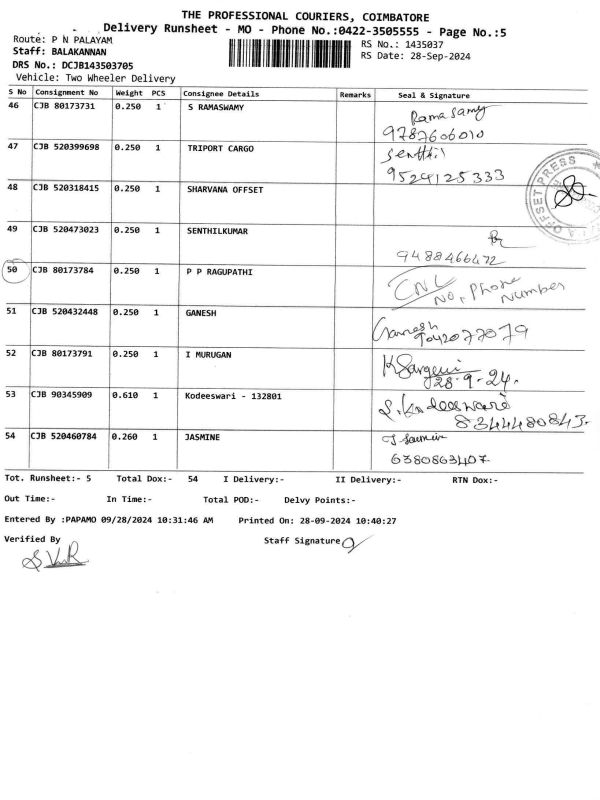 THE PROFESSIONAL COURIERS, COIMBATORE
Delivery Runsheet - MO - Phone No.:0422-3505555 - Page No.:5
Route: P N PALAYAM
RS No.: 1435037
Staff: BALAKANNAN
RS Date: 28-Sep-2024
DRS No.: DCJB143503705
Vehicle: Two Wheeler Delivery
S No Consignment No Weight PCS Consignee Details Remarks Seal & Signature
46 CJB 80173731 0.250 1 S RAMASWAMY Rama Samy
9787606010
47 CJB 520399698 0.250 1 TRIPORT CARGO Senthil
9524125333
48 CJB 520318415 0.250 1 SHARVANA OFFSET
OFFSET PRESS
49 CJB 520473023 0.250 1 SENTHILKUMAR
9488466472
50 CJB 80173784 0.250 1 P P RAGUPATHI CNL
No, Phone Number
51 CJB 520432448 0.250 1 GANESH Ganesh
7042077079
52 CJB 80173791 0.250 1 I MURUGAN
28-9-24.
53 CJB 90345909 0.610 1 Kodeeswari - 132801
8344480843.
54 CJB 520460784 0.260 1 JASMINE
6380863407
Tot. Runsheet:- 5 Total Dox:- 54 I Delivery:- II Delivery:- RTN Dox:-
Out Time:- In Time:- Total POD:- Delvy Points:-
Entered By :PAPAMO 09/28/2024 10:31:46 AM Printed On: 28-09-2024 10:40:27
Verified By Staff Signature